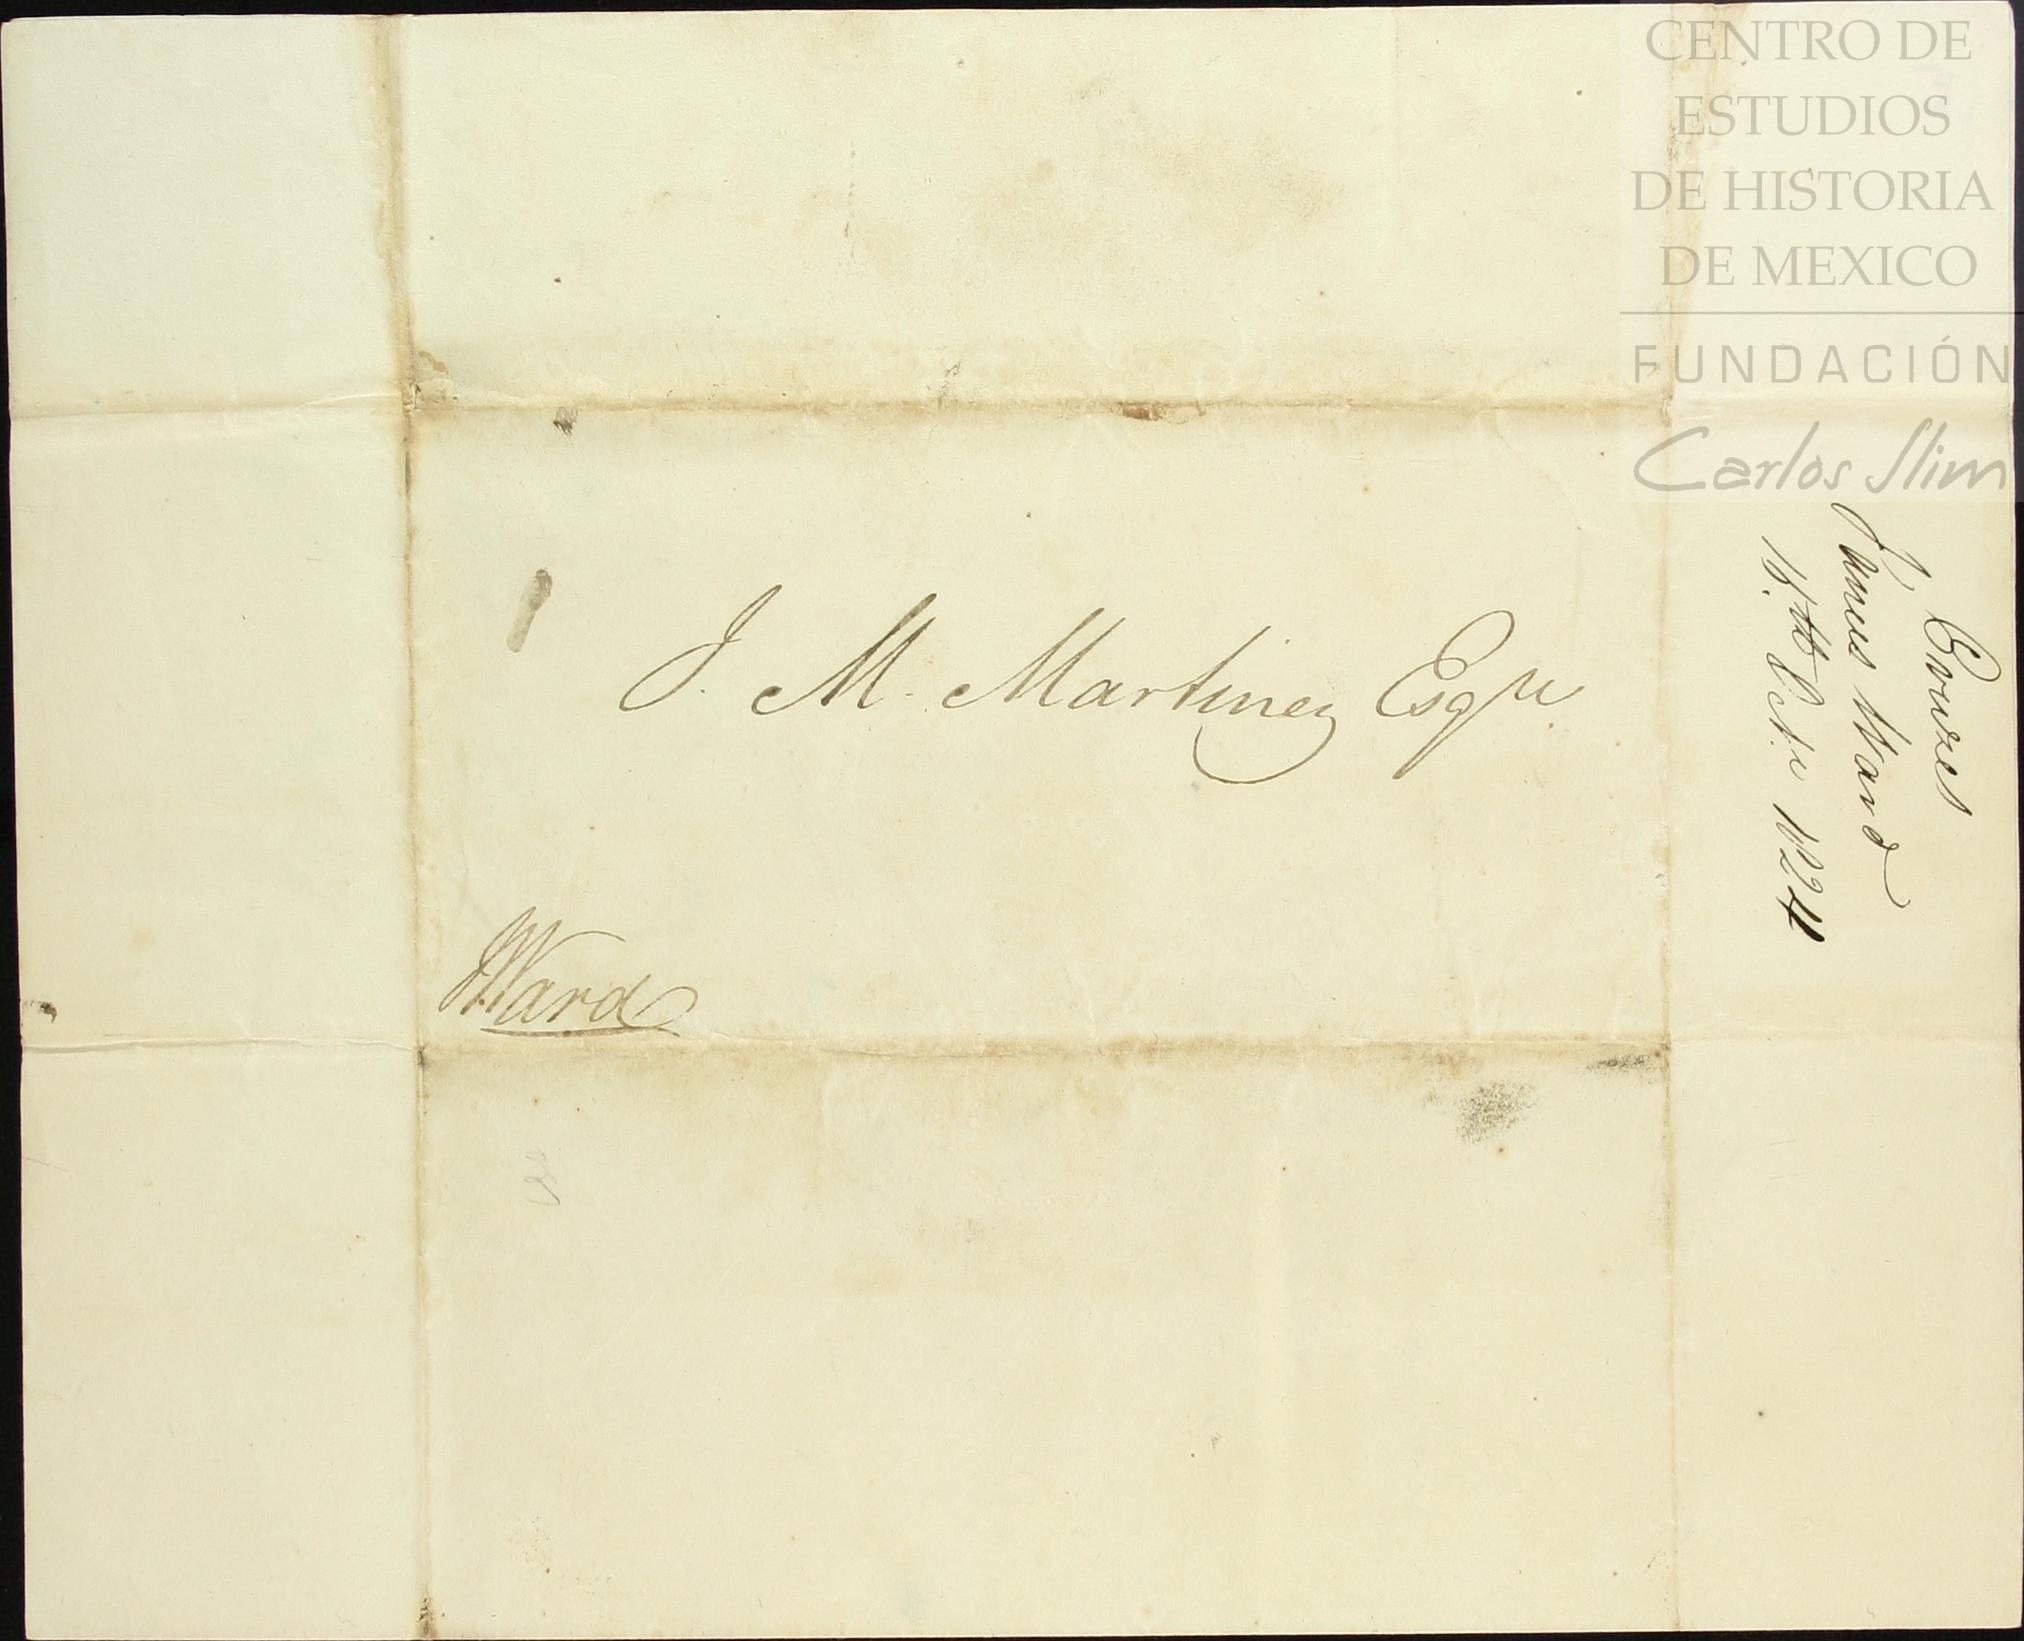 CENTRO DE
ESTUDIOS
DE HISTORIA
DE MEXICO
FUNDACIÓN
Carlos Slim
J. M. Martinez Esqre.
JWard
James Ward
15th Octr. 1824